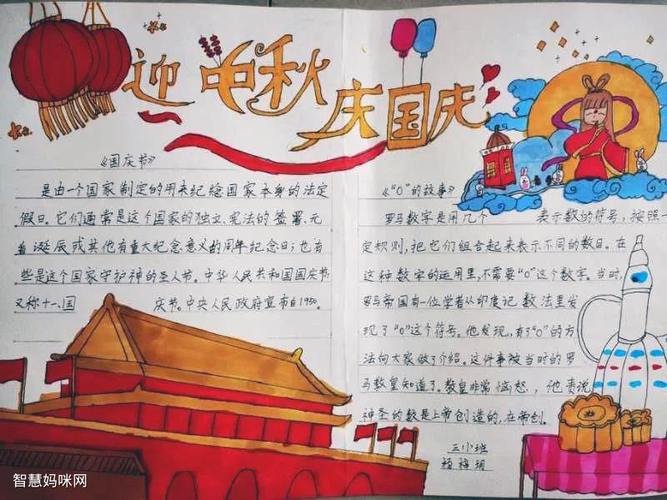 迎中秋 庆国庆
《国庆节》
是由一个国家制定的用来纪念国家本身的法定
假日。它们通常是这个国家的独立、宪法的签署、元
首诞辰或其他有重大纪念意义的周年纪念日；也有
些是这个国家守护神的圣人节。中华人民共和国国庆节
又称十一、国 庆节。中央人民政府宣布自1950。
《"0"的故事》
罗马数字是用几个 表示数的符号，按照一
定规则，把它们组合起来表示不同的数目。在
这种数字的运用里，不需要"0"这个数字。当时，
罗马帝国有一位学者从印度记数法里发
现了"0"这个符号。他发现，有了"0"的方
法向大家做了介绍。这件事被当时的罗
马教皇知道了。教皇非常恼怒，他斥说，
神圣的数是上帝创造的，在帝创。
三小班
智慧妈咪网